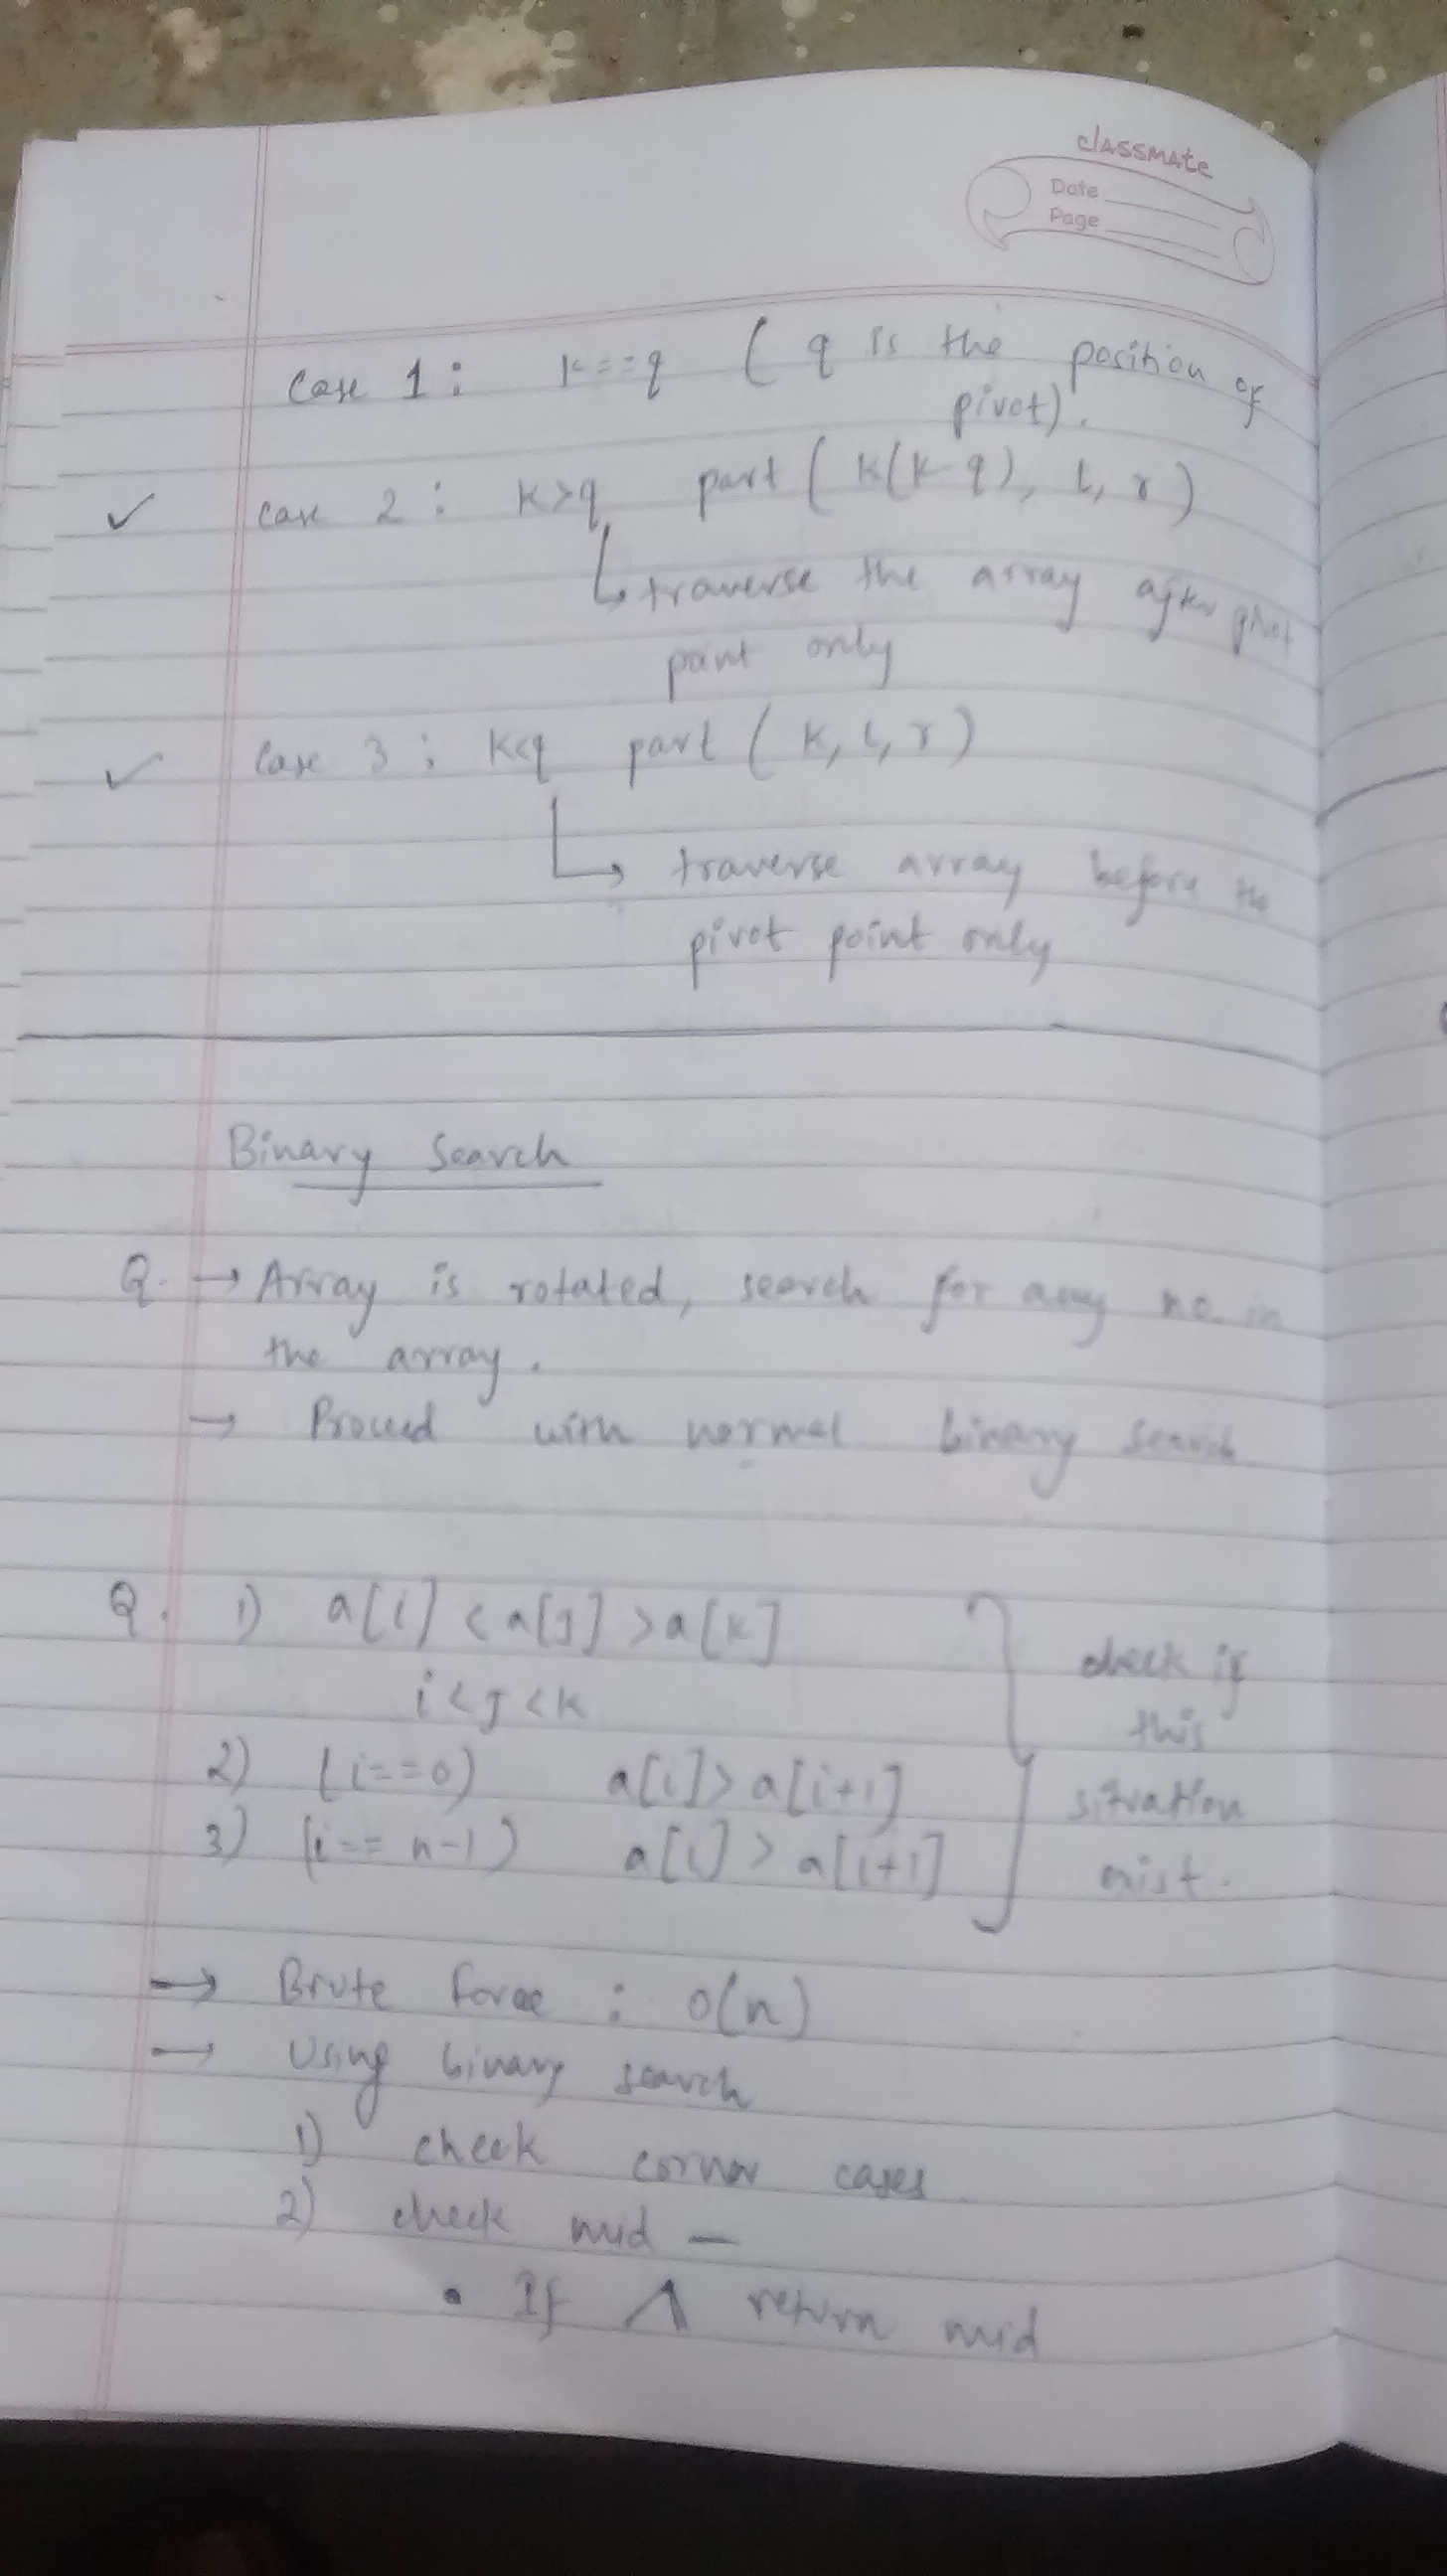 classmate
Date
Page
Case 1 : k==q ( q is the position of
pivot).
✓ case 2 : k>q part ( k(k-q), l, r )
↳ traverse the array after pivot
point only
✓ Case 3 : k<q part ( k, l, r )
↳ traverse array before the
pivot point only
Binary Search
Q. → Array is rotated, search for any no. in
the array.
→ Proceed with normal binary search
Q. 1) a[i] < a[j] > a[k]
i < j < k
check if
this
2) (i==0) a[i] > a[i+1]
situation
3) (i== n-1) a[i] > a[i+1]
exist.
→ Brute force : O(n)
→ Using binary search
1) check corner cases
2) check mid —
• If Λ return mid